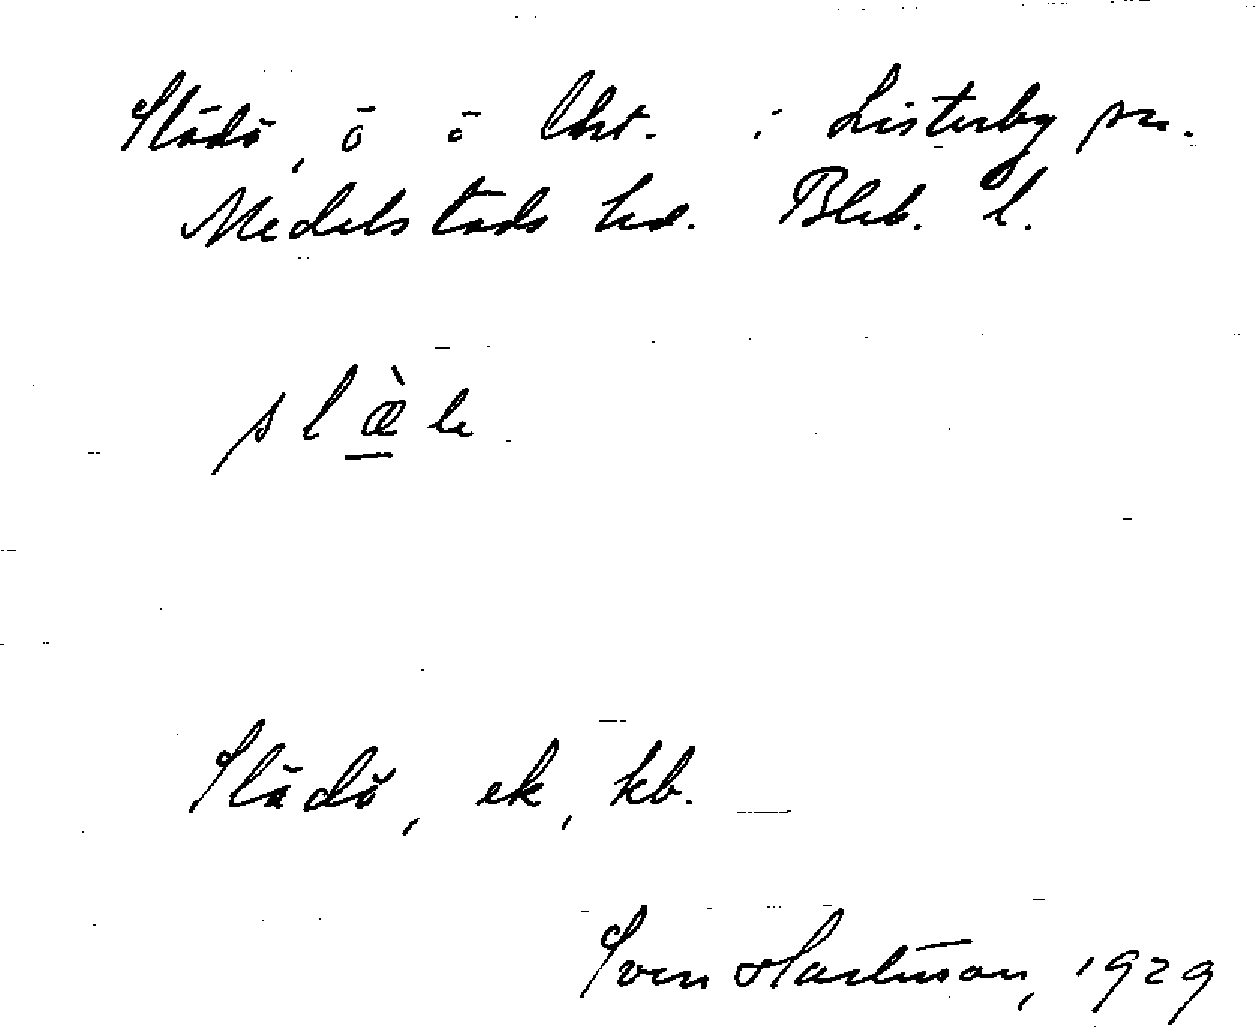 Slädö, ö o lht. i Listerby sn.
Medelstads hd. Blek. l.
slæ̀
Slädö, ek, kb.
Sven Hartman, 1929